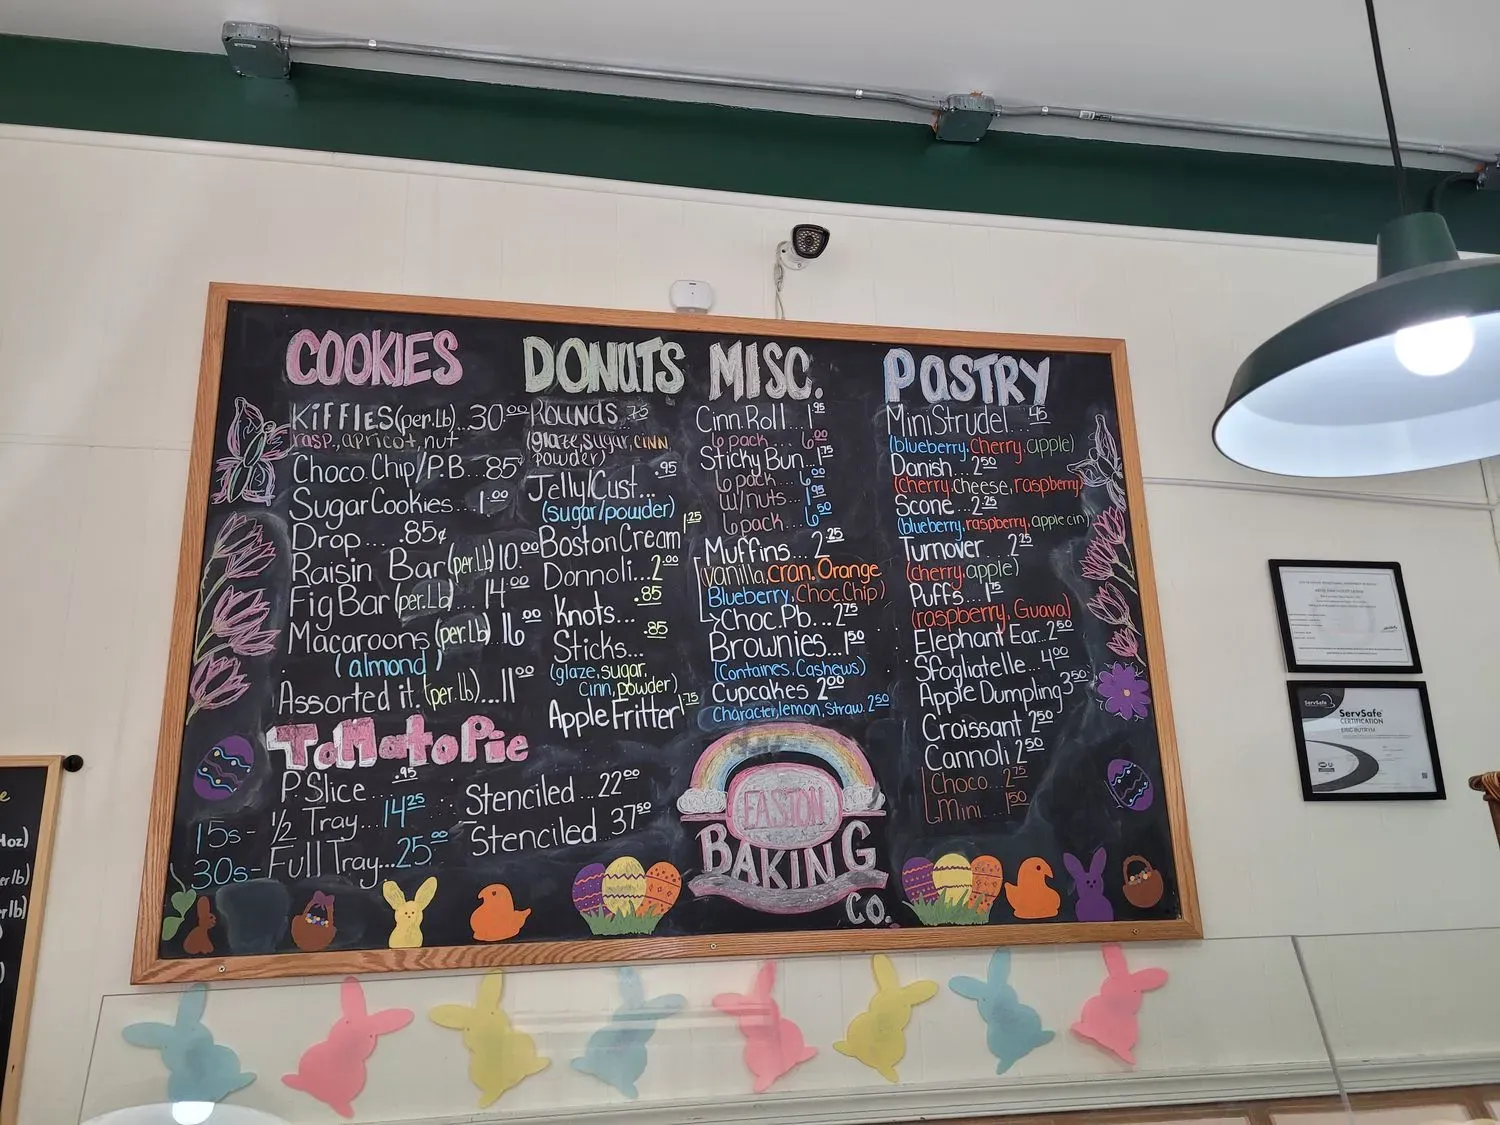 COOKIES
KIFFLES (per. Lb)...30.00
rasp., apricot, nut
Choco. Chip/P.B...85¢
Sugar Cookies...1.00
Drop....85¢
Raisin Bar (per. Lb) 10.00
Fig Bar (per. Lb)...14.00
Macaroons (per. Lb) 16.00
(almond)
Assorted it. (per lb)...11.00
Tomato Pie
P. Slice .95
15s- 1/2 Tray...14.25
30s- Full Tray...25.00
Stenciled...22.00
Stenciled 37.50
DONUTS
Rounds .75
(glaze, sugar, cinn
powder)
Jelly/Cust... .95
(sugar/powder)
Boston Cream 1.25
Donnoli...2.00
Knots... .85
Sticks... .85
(glaze, sugar,
cinn, powder)
Apple Fritter 1.75
MISC.
Cinn. Roll...1.95
6 pack...6.00
Sticky Bun...1.75
6 pack...6.00
w/nuts...1.95
6 pack...6.50
Muffins...2.25
(Vanilla, cran. Orange
Blueberry, Choc. Chip)
Choc. Pb...2.75
Brownies...1.50
(Containes, Cashews)
Cupcakes 2.00
Character, lemon, Straw. 2.50
EASTON
BAKING
CO.
PASTRY
Mini Strudel... .45
(blueberry, Cherry, apple)
Danish...2.50
(cherry, cheese, raspberry)
Scone...2.25
(blueberry, raspberry, apple cin)
Turnover...2.25
(cherry, apple)
Puffs...1.75
(raspberry, Guava)
Elephant Ear...2.50
Sfogliatelle...4.00
Apple Dumpling 3.50
Croissant 2.50
Cannoli 2.50
Choco...2.75
Mini...1.50
ServSafe
ServSafe
CERTIFICATION
ERIC BUTRYM